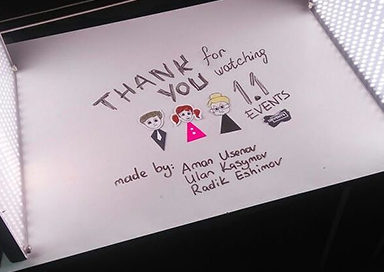 THANK for
YOU watching
1.1
EVENTS
made by: Aman Usenov
Ulan Kasymov
Radik Eshimov